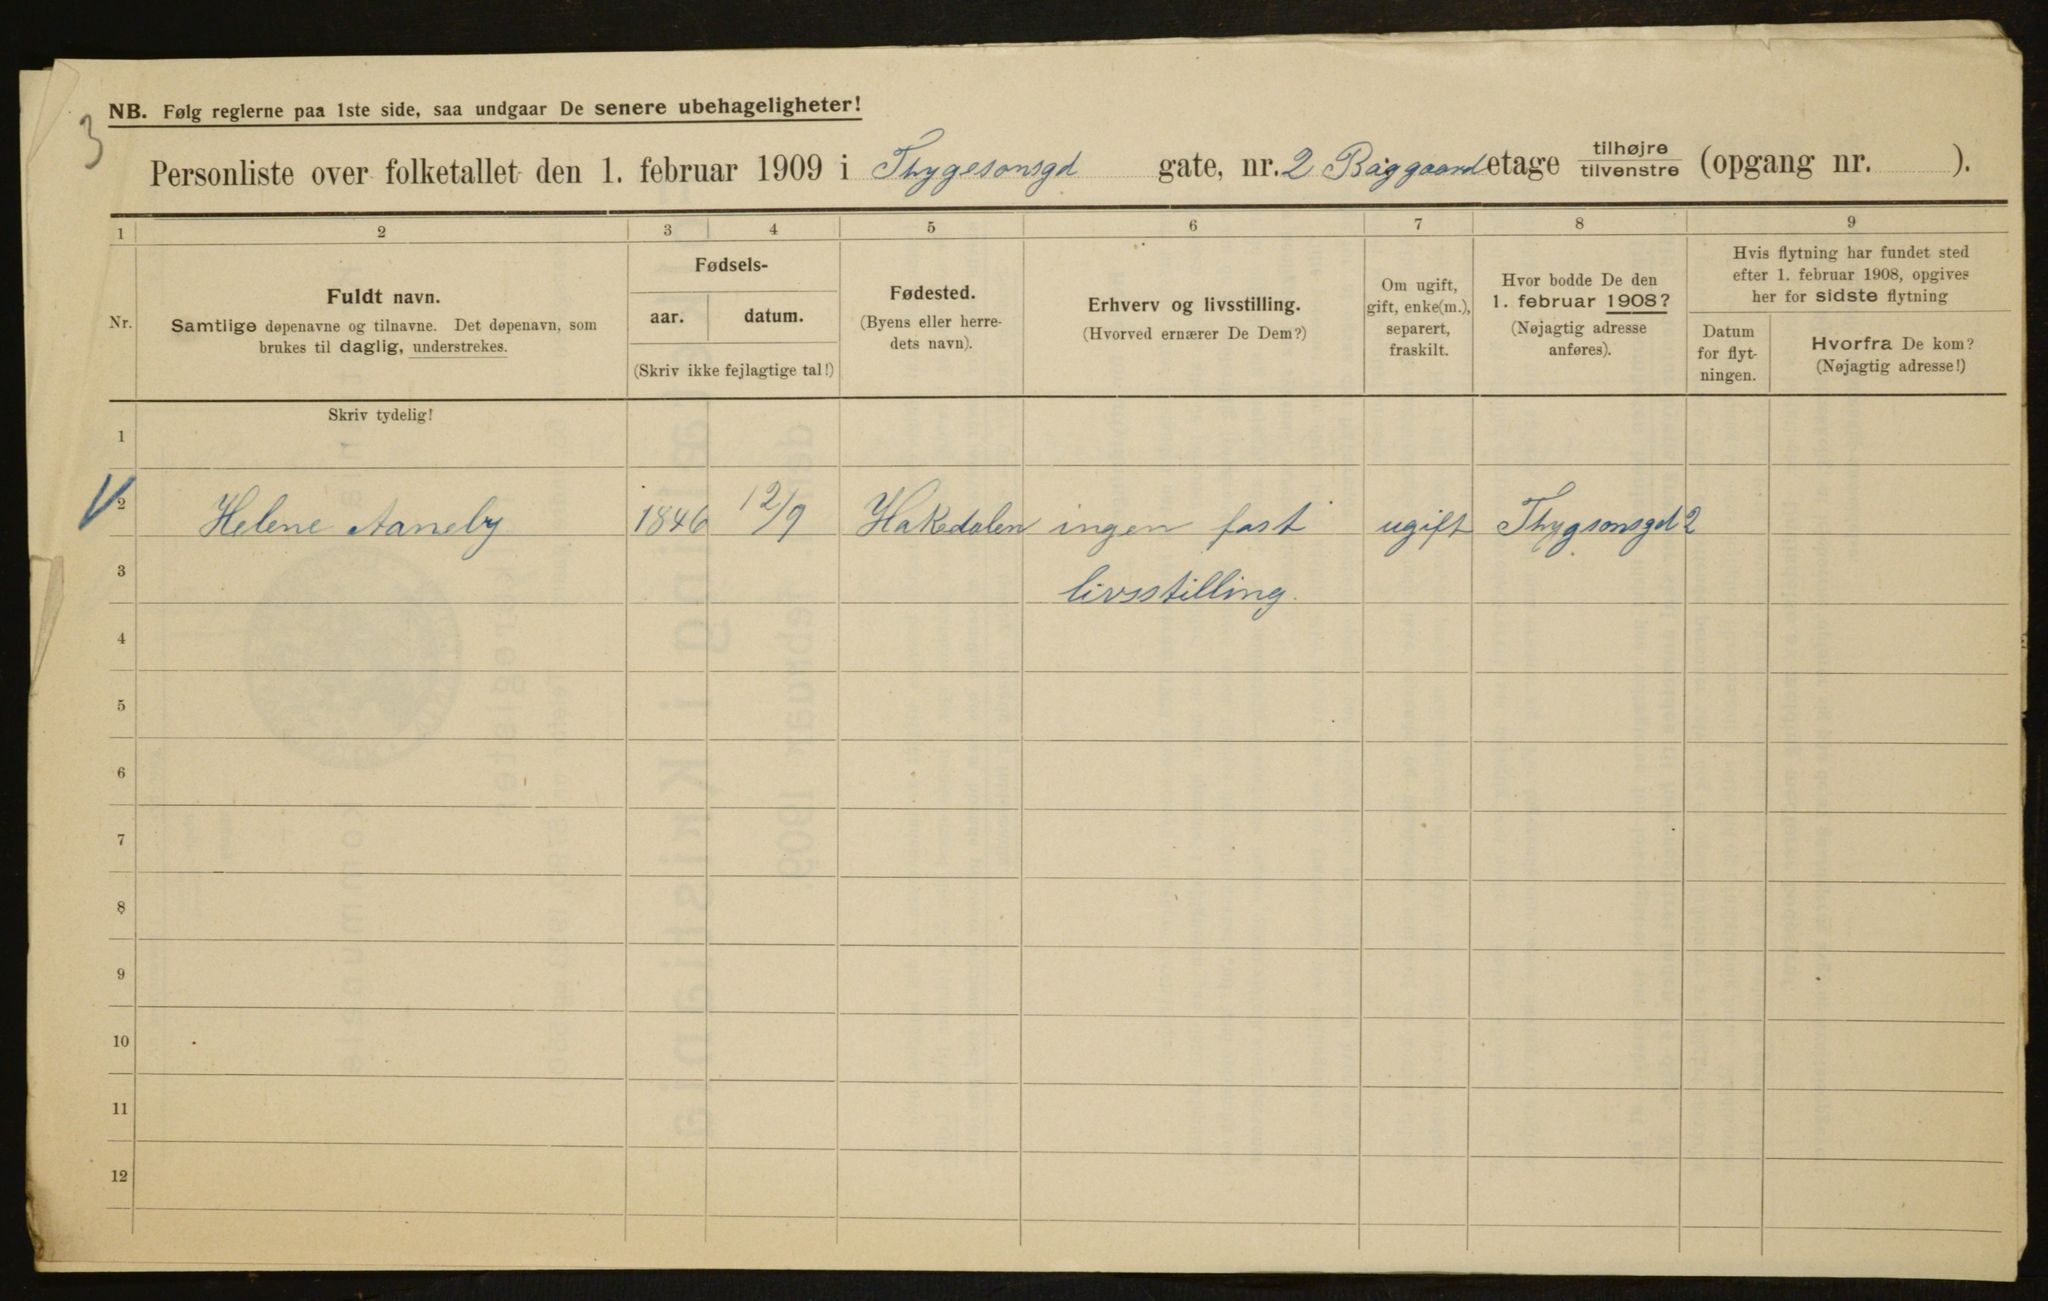 NB. Følg reglerne paa 1ste side, saa undgaar De senere ubehageligheter!
3
Personliste over folketallet den 1. februar 1909 i Thygesonsgd gate, nr. 2 Baggaard etage tilhøjre tilvenstre (opgang nr. ).
1 2 3 4 5 6 7 8 9
Nr.
Fuldt navn.
Samtlige døpenavne og tilnavne. Det døpenavn, som
brukes til daglig, understrekes.
Fødsels-
aar. datum.
(Skriv ikke fejlagtige tal!)
Fødested.
(Byens eller herre-
dets navn).
Erhverv og livsstilling.
(Hvorved ernærer De Dem?)
Om ugift,
gift, enke(m.),
separert,
fraskilt.
Hvor bodde De den
1. februar 1908?
(Nøjagtig adresse
anføres).
Hvis flytning har fundet sted
efter 1. februar 1908, opgives
her for sidste flytning
Datum
for flyt-
ningen.
Hvorfra De kom?
(Nøjagtig adresse!)
Skriv tydelig!
1
2 Helene Aaneby 1846 12/9 Hakedalen ingen fast ugift Thygsonsgd 2
3 livsstilling.
4
5
6
7
8
9
10
11
12